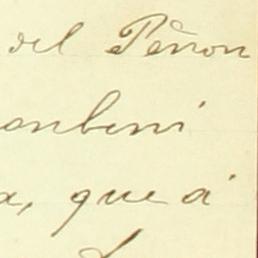 del Peñon
onbeni
a, que á